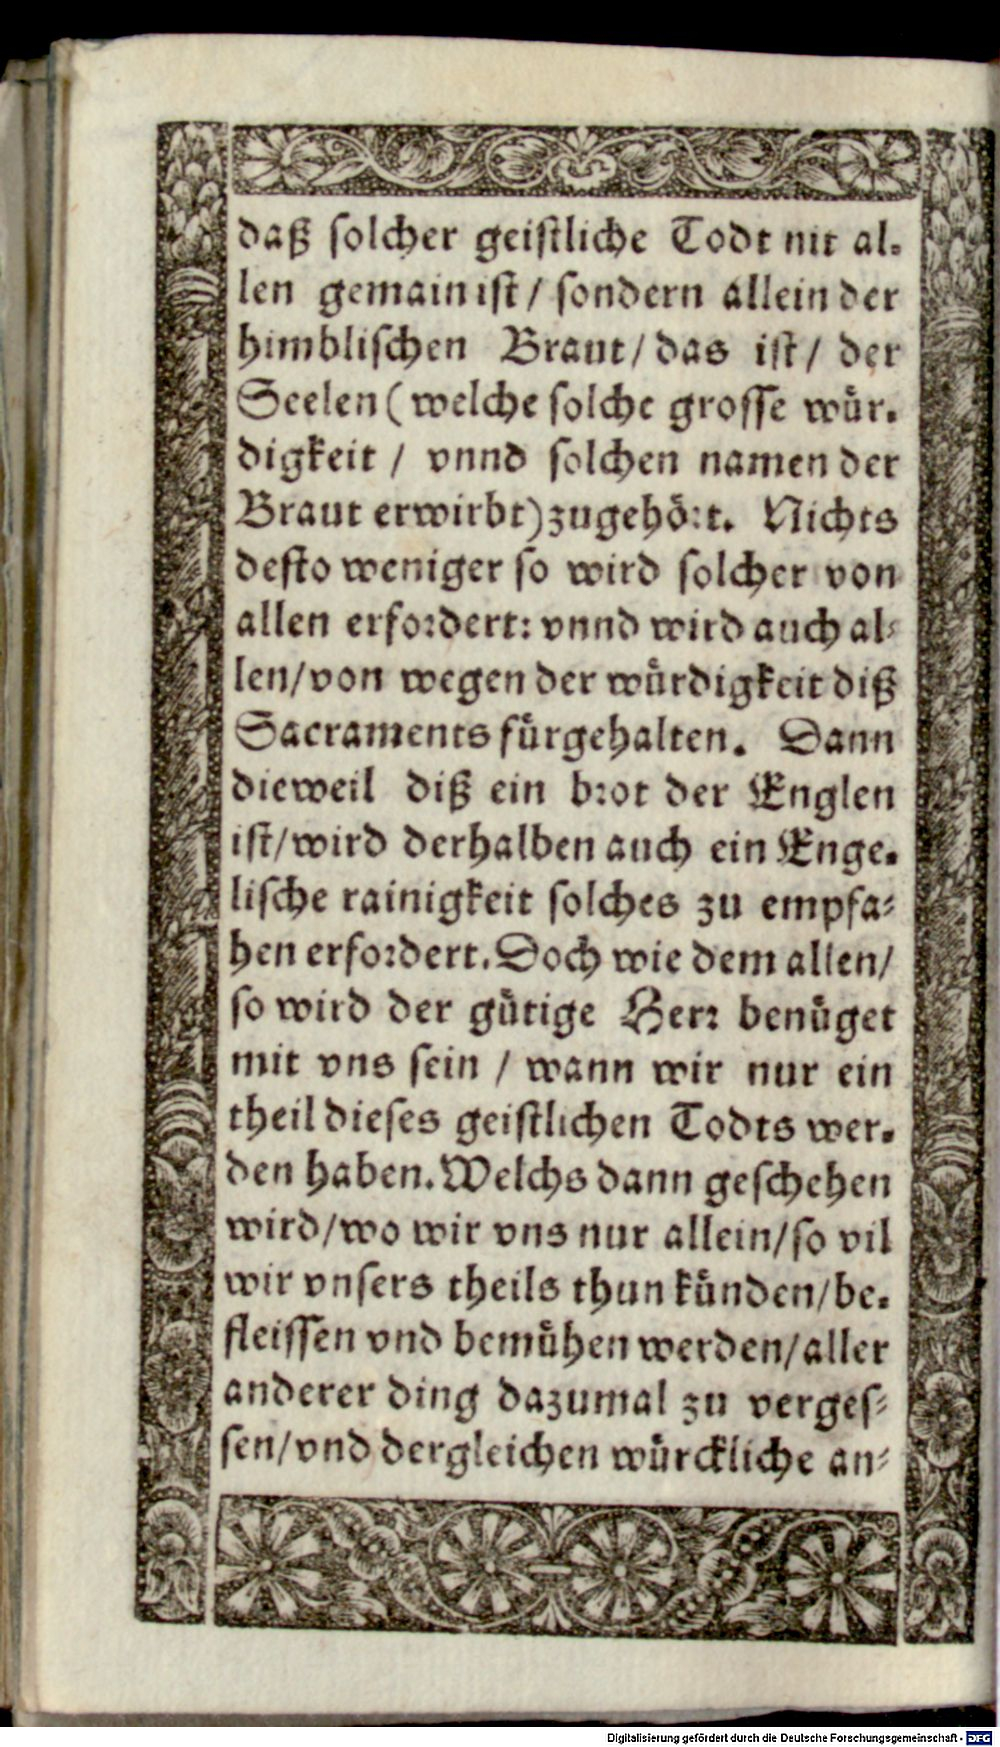 daß solcher geistliche Todt nit al-
len gemain ist / sondern allein der
himblischen Braut / das ist / der
Seelen ( welche solche grosse wür-
digkeit / vnnd solchen namen der
Braut erwirbt) zugehört. Nichts
desto weniger so wird solcher von
allen erfordert: vnnd wird auch al-
len/von wegen der würdigkeit diß
Sacraments fürgehalten. Dann
dieweil diß ein brot der Englen
ist/wird derhalben auch ein Enge-
lische rainigkeit solches zu empfa-
hen erfordert. Doch wie dem allen/
so wird der gütige Herr benüget
mit vns sein / wann wir nur ein
theil dieses geistlichen Todts wer-
den haben. Welchs dann geschehen
wird/wo wir vns nur allein/so vil
wir vnsers theils thun künden/be-
fleissen vnd bemühen werden/aller
anderer ding dazumal zu verges-
sen/vnd dergleichen würckliche an-
Digitalisierung gefördert durch die Deutsche Forschungsgemeinschaft - DFG